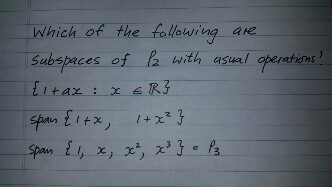 Which of the following are
subspaces of P₂ with usual operations?
{1+ax : x ∈ ℝ}
span {1+x, 1+x²}
span {1, x, x², x³} = P₃